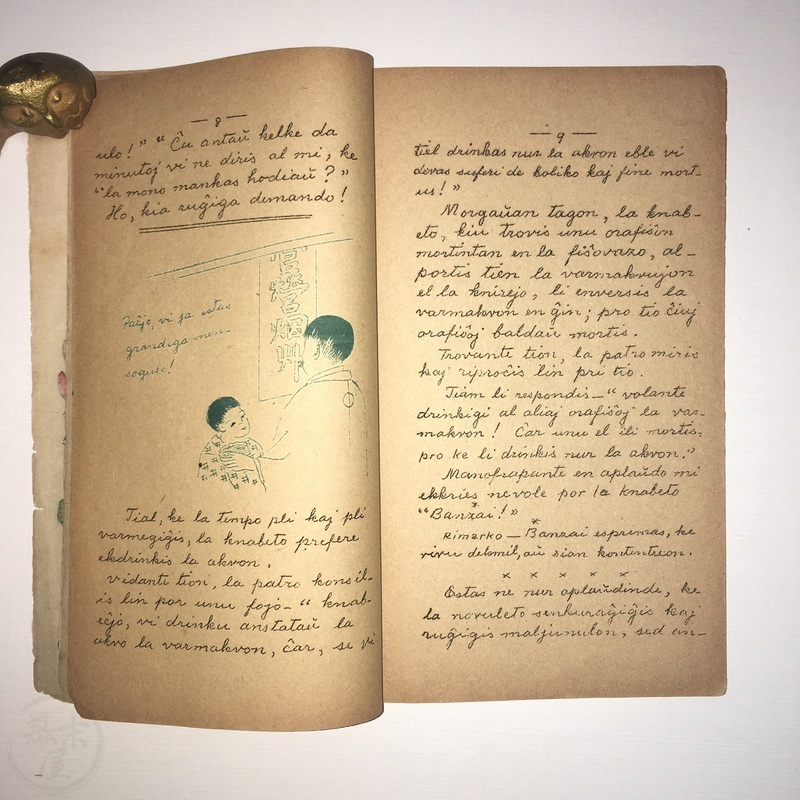 — 8 —
ulo!" " Ĉu antaŭ kelke da
minutoj vi ne diris al mi, ke
"la mono mankas hodiaŭ?"
Ho, kia ruĝiga demando!
Paĉjo, vi ja estas
grandega men-
sogulo!
Tial, ke la tempo pli kaj pli
varmegiĝis, la knabeto prefere
ekdrinkis la akvon.
Vidante tion, la patro konsil-
is lin por unu fojo — "knab-
eĉjo, vi drinku anstataŭ la
akvo la varmakvon, ĉar, se vi
— 9 —
tiel drinkas nur la akvon eble vi
devas suferi de koliko kaj fine mort-
us!"
Morgaŭan tagon, la knab-
eto, kiu trovis unu orafiŝon
mortintan en la fiŝovazo, al-
portis tien la varmakvujon
el la kuirejo, li enversis la
varmakvon en ĝin; pro tio ĉiuj
orafiŝoj baldaŭ mortis.
Trovante tion, la patro miris
kaj riproĉis lin pri tio.
Tiam li respondis — "volante
drinkigi al aliaj orafiŝoj la var-
makvon! Ĉar unu el ili mortis,
pro ke li drinkis nur la akvon."
Manofrapante en aplaŭdo mi
ekkries nevole por la knabeto
"Banzai!"
Rimarko — Banzai esprimas, ke
vivu dekmil, aŭ sian kontentecon.
× × × × ×
Estas ne nur aplaŭdinde, ke
la novuleto senkuraĝiĝis kaj
ruĝigis maljunulon, sed an-